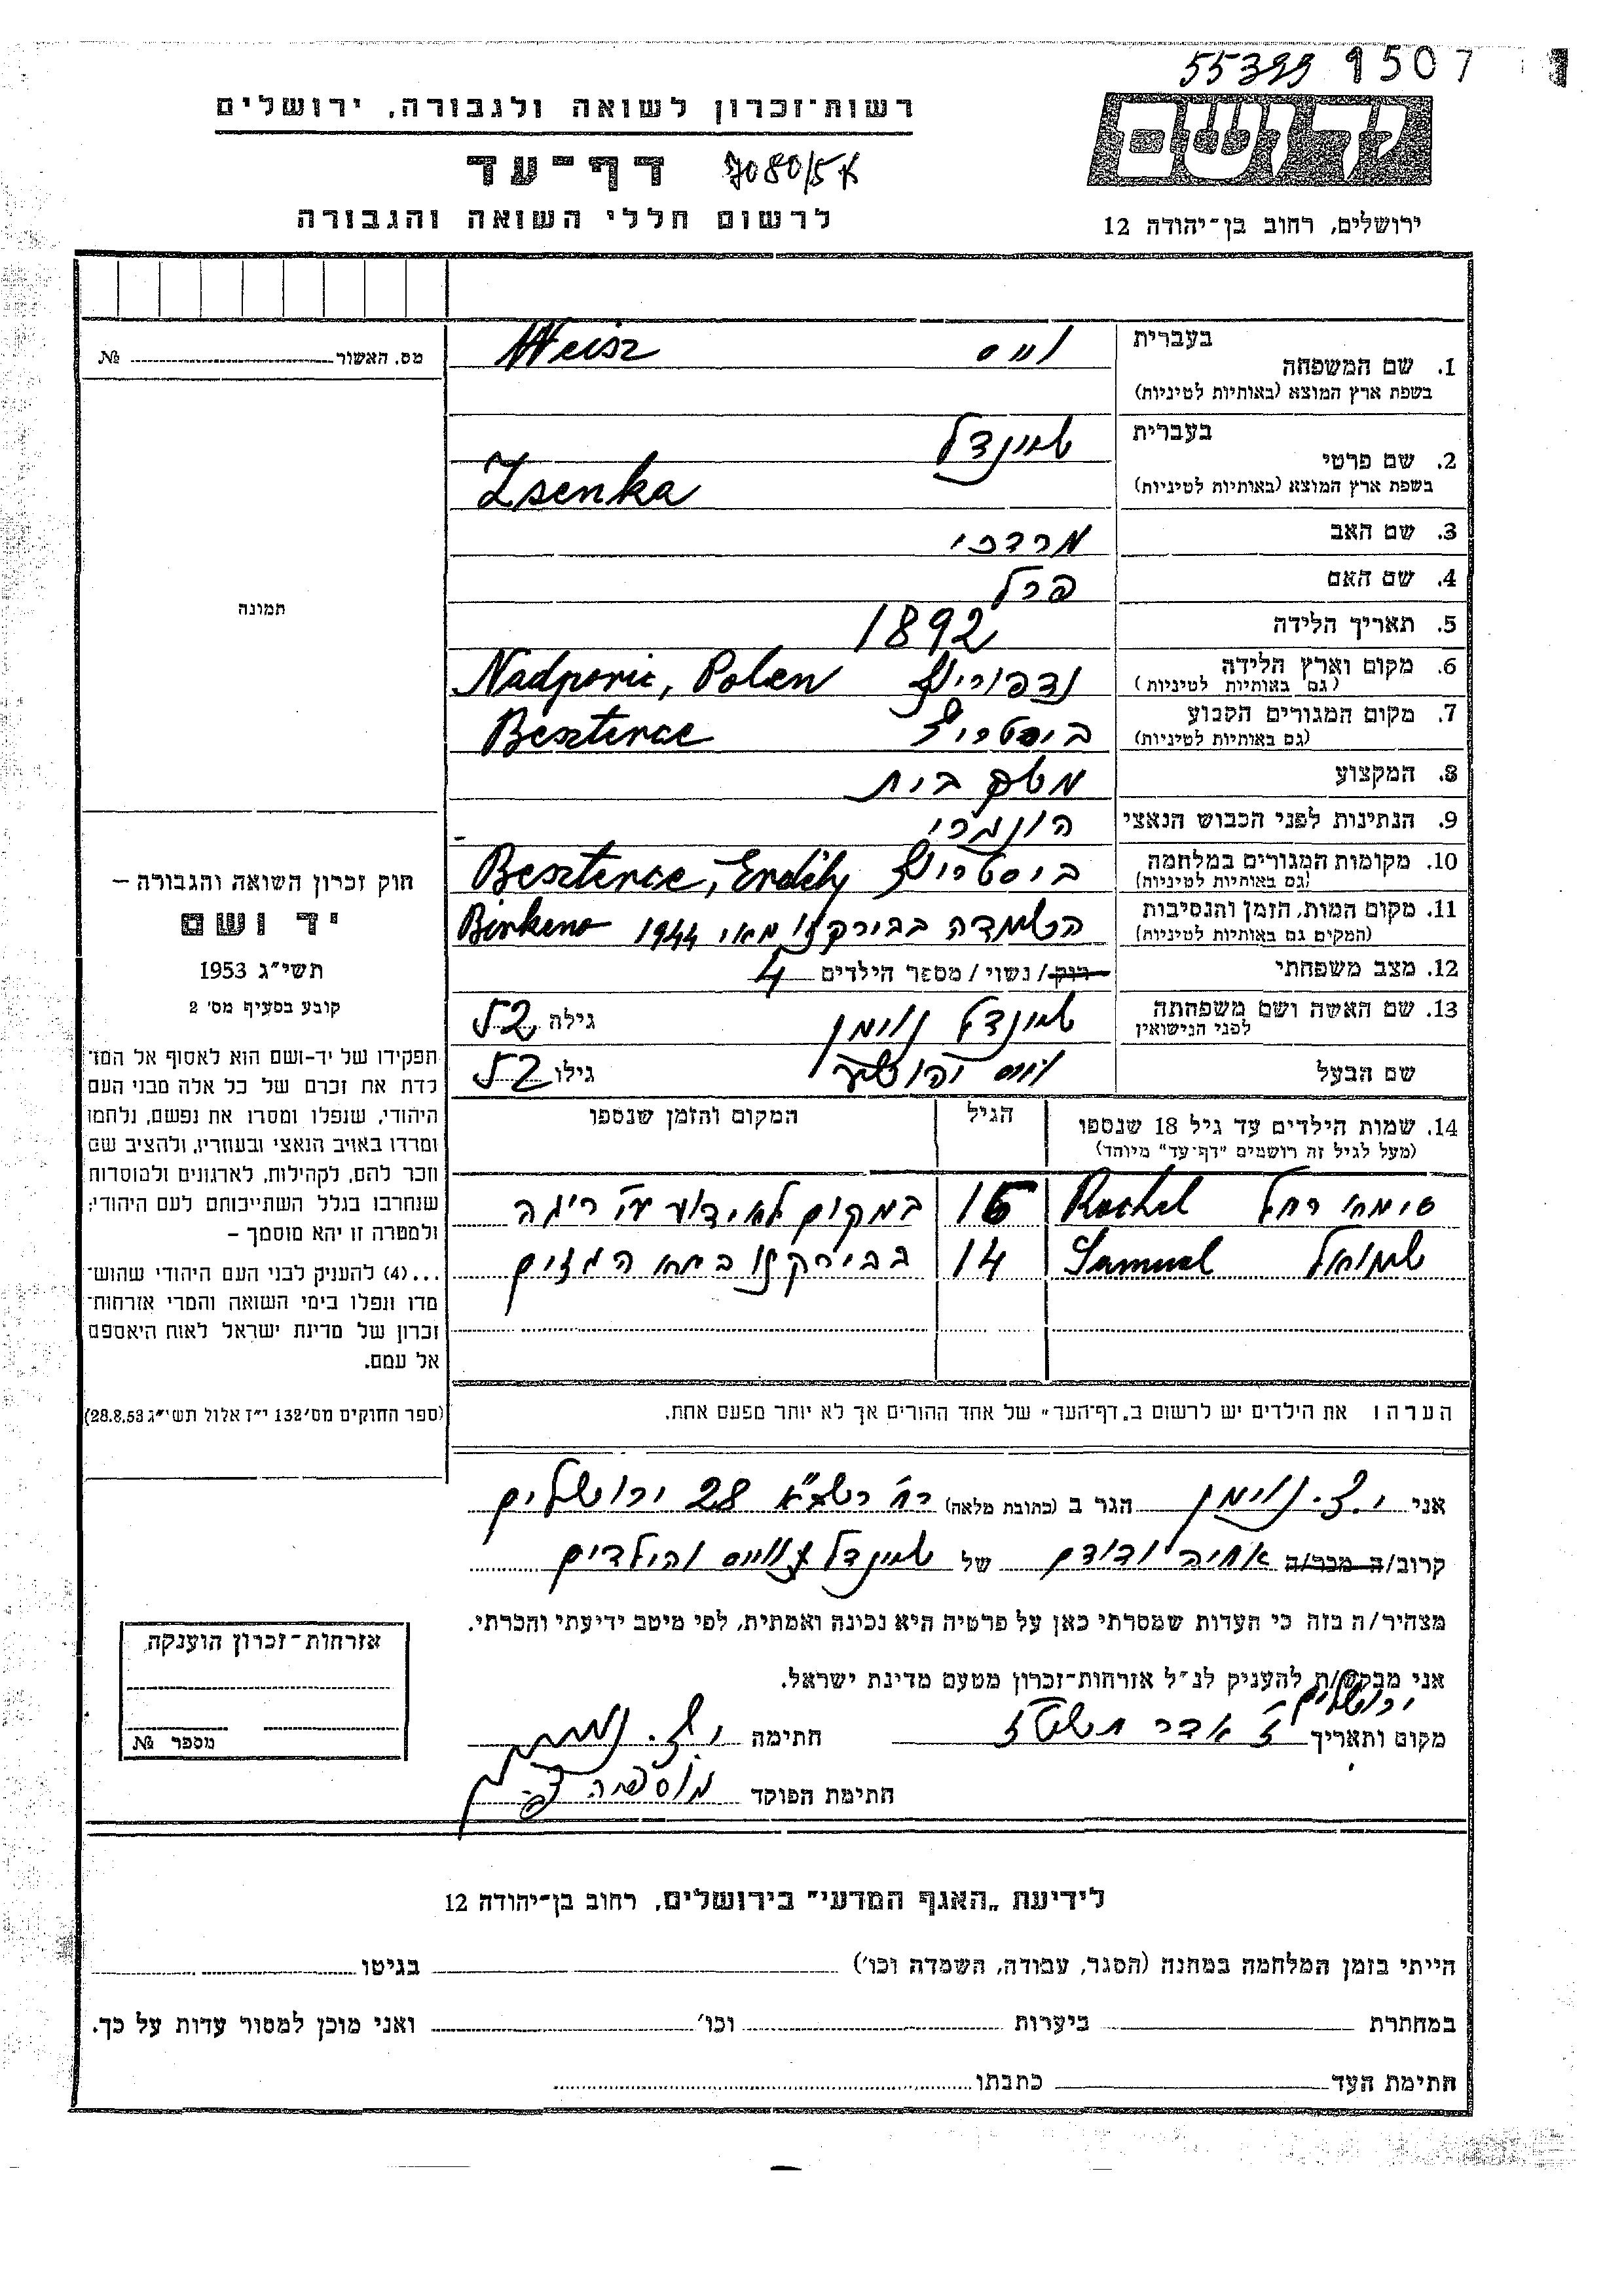 55399 1507
יד ושם
רשות-זכרון לשואה ולגבורה, ירושלים
דף-עד
לרשום חללי השואה והגבורה
ירושלים, רחוב בן-יהודה 12
בעברית
1. שם המשפחה וייס Weisz
בשפת ארץ המוצא (באותיות לטיניות)
בעברית שיינדל
2. שם פרטי
בשפת ארץ המוצא (באותיות לטיניות) Zsenka
3. שם האב מרדכי
4. שם האם פרל
5. תאריך הלידה 1892
6. מקום וארץ הלידה Nadporic, Polen
(גם באותיות לטיניות)
7. מקום המגורים הקבוע ביסטריץ Beszterce
(גם באותיות לטיניות)
8. המקצוע משק בית
9. הנתינות לפני הכבוש הנאצי הונגרי
10. מקומות המגורים במלחמה ביסטריץ Beszterce, Erdély
(גם באותיות לטיניות)
11. מקום המות, הזמן והנסיבות הושמדה בבירקנו מאי 1944 Birkeno
(המקום גם באותיות לטיניות)
12. מצב משפחתי רוק/נשוי/מספר הילדים 4
13. שם האשה ושם משפחתה שיינדל נוימן גילה 52
לפני הנישואין
שם הבעל וייס יהושע גילו 52
14. שמות הילדים עד גיל 18 שנספו הגיל המקום והזמן שנספו
(מעל לגיל זה רושמים "דף-עד" מיוחד)
רחל Rachel 16 במקום לא ידוע ע"י ריגה
שמואל Samuel 14 בבירקנו בתא הגזים
הערה: את הילדים יש לרשום ב"דף-העד" של אחד ההורים אך לא יותר מפעם אחת.
מס. האשור №
תמונה
חוק זכרון השואה והגבורה –
יד ושם
תשי"ג 1953
קובע בסעיף מס' 2
תפקידו של יד-ושם הוא לאסוף אל המו־
לדת את זכרם של כל אלה מבני העם
היהודי, שנפלו ומסרו את נפשם, נלחמו
ומרדו באויב הנאצי ובעוזריו, ולהציב שם
וזכר להם, לקהילות, לארגונים ולמוסדות
שנחרבו בגלל השתייכותם לעם היהודי;
ולמטרה זו יהא מוסמך –
...(4) להעניק לבני העם היהודי שהוש־
מדו ונפלו בימי השואה והמרי אזרחות־
זכרון של מדינת ישראל לאות היאספם
אל עמם.
(ספר החוקים מס' 132 י"ז אלול תשי"ג 28.8.53)
אני י.צ. נוימן הגר ב (כתובת מלאה) רח' רש"י 28 ירושלים
קרוב/ה מכר/ה אחיה ודודם של שיינדל וייס והילדים
מצהיר/ה בזה כי העדות שמסרתי כאן על פרטיה היא נכונה ואמתית, לפי מיטב ידיעתי והכרתי.
אני מבקש/ת להעניק לנ"ל אזרחות-זכרון מטעם מדינת ישראל.
ירושלים
מקום ותאריך אדר תשט"ז חתימה י.צ. נוימן
חתימת הפוקד
אזרחות-זכרון הוענקה
מספר №
לידיעת "האגף המדעי" בירושלים, רחוב בן-יהודה 12
הייתי בזמן המלחמה במחנה (הסגר, עבודה, השמדה וכו') בגיטו
במחתרת ביערות וכו' ואני מוכן למסור עדות על כך.
חתימת העד כתבתו